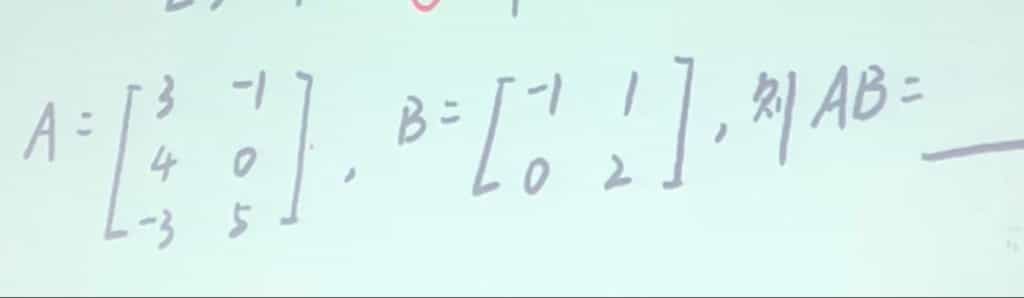 A = [3 -1
4 0
-3 5], B = [-1 1
0 2], 则 AB = ___